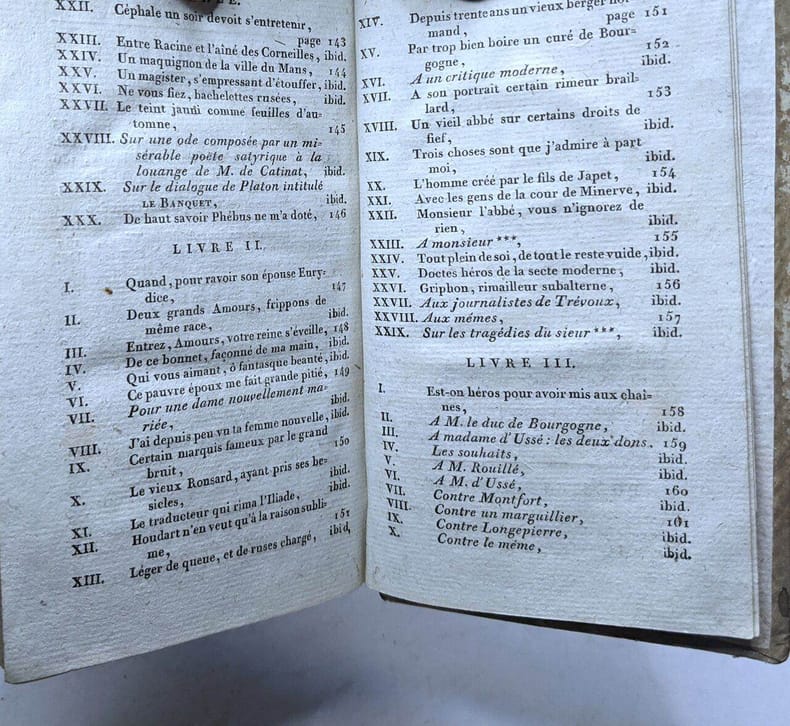 XXII. Céphale un soir devoit s'entretenir,
page 143
XXIII. Entre Racine et l'ainé des Corneilles, ibid.
XXIV. Un maquignon de la ville du Mans, 144
XXV. Un magister, s'empressant d'étouffer, ibid.
XXVI. Ne vous fiez, bachelettes rusées, ibid.
XXVII. Le teint jauni comme feuilles d'au-
tomne, 145
XXVIII. Sur une ode composée par un mi-
sérable poëte satyrique à la
louange de M. de Catinat, ibid.
XXIX. Sur le dialogue de Platon intitulé
LE BANQUET, ibid.
XXX. De haut savoir Phébus ne m'a doté, 146
LIVRE II.
I. Quand, pour ravoir son épouse Eury-
dice, 147
II. Deux grands Amours, frippons de
même race, ibid.
III. Entrez, Amours, votre reine s'éveille, 148
IV. De ce bonnet, façonné de ma main, ibid.
V. Qui vous aimant, ô fantasque beauté, ibid.
VI. Ce pauvre époux me fait grande pitié, 149
VII. Pour une dame nouvellement ma-
riée, ibid.
VIII. J'ai depuis peu vu ta femme nouvelle, ibid.
IX. Certain marquis fameux par le grand
bruit, 150
X. Le vieux Ronsard, ayant pris ses be-
sicles, ibid.
XI. Le traducteur qui rima l'Iliade, ibid.
XII. Houdart n'en veut qu'à la raison subli-
me, 151
XIII. Léger de queue, et de ruses chargé, ibid,
XIV. Depuis trente ans un vieux berger
mand, page 151
XV. Par trop bien boire un curé de Bour-
gogne, 152
XVI. A un critique moderne, ibid.
XVII. A son portrait certain rimeur brail-
lard, 153
XVIII. Un vieil abbé sur certains droits de
fief, ibid.
XIX. Trois choses sont que j'admire à part
moi, ibid.
XX. L'homme créé par le fils de Japet, 154
XXI. Avec les gens de la cour de Minerve, ibid.
XXII. Monsieur l'abbé, vous n'ignorez de
rien, ibid.
XXIII. A monsieur ***, 155
XXIV. Tout plein de soi, de tout le reste vuide, ibid.
XXV. Doctes héros de la secte moderne, ibid.
XXVI. Griphon, rimailleur subalterne, 156
XXVII. Aux journalistes de Trévoux, ibid.
XXVIII. Aux mêmes, 157
XXIX. Sur les tragédies du sieur ***, ibid.
LIVRE III.
I. Est-on héros pour avoir mis aux chaî-
nes, 158
II. A M. le duc de Bourgogne, ibid.
III. A madame d'Ussé: les deux dons. 159
IV. Les souhaits, ibid.
V. A M. Rouillé, ibid.
VI. A M. d'Ussé, 160
VII. Contre Montfort, ibid.
VIII. Contre un marguillier, 161
IX. Contre Longepierre, ibid.
X. Contre le même, ibid.